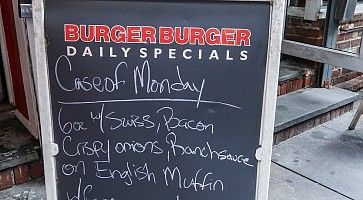 BURGER BURGER
DAILY SPECIALS
Case of Monday
6oz w/ Swiss, Bacon
Crispy onions, Ranch sauce
on English Muffin